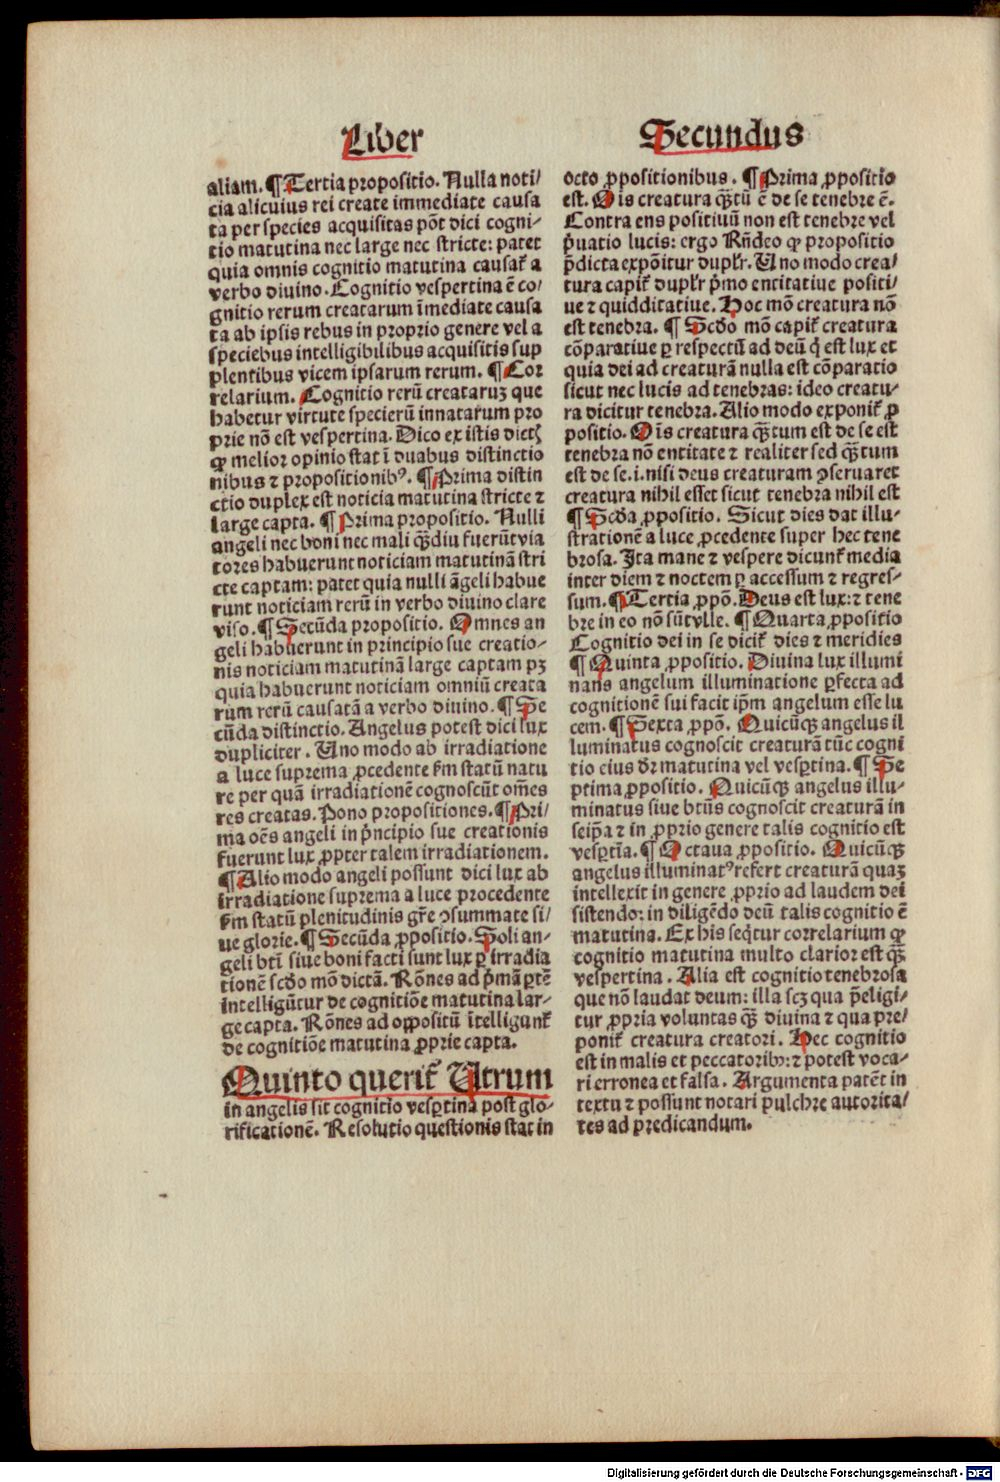 Liber
Secundus
aliam. ¶ Tertia propositio. Nulla noti/
cia alicuius rei create immediate causa
ta per species acquisitas põt dici cogni-
tio matutina nec large nec stricte: patet
quia omnis cognitio matutina causat᷑ a
verbo diuino. Cognitio vespertina ē co/
gnitio rerum creatarum īmediate causa
ta ab ipsis rebus in proprio genere vel a
speciebus intelligibilibus acquisitis sup
plentibus vicem ipsarum rerum. ¶ Cor
relarium. Cognitio rerū creataruꝫ que
habetur virtute specierū innatarum pro
prie nō est vespertina. Dico ex istis dictꝭ
ꝙ melior opinio stat ī duabus distinctio
nibus ⁊ propositionibꝰ. ¶ Prima distin
ctio duplex est noticia matutina stricte ⁊
large capta. ¶ Prima propositio. Nulli
angeli nec boni nec mali q̄ꝫdiu fuerūt via
tores habuerunt noticiam matutinā stri
cte captam: patet quia nulli āgeli habue
runt noticiam rerū in verbo diuino clare
viso. ¶ Secūda propositio. Omnes an
geli habuerunt in principio sue creatio-
nis noticiam matutinā large captam pꝫ
quia habuerunt noticiam omniū creata
rum rerū causatā a verbo diuino. ¶ Se
cūda distinctio. Angelus potest dici lux
dupliciter. Uno modo ab irradiatione
a luce suprema ꝓcedente ẜm statū natu
re per quā irradiationē cognoscūt om̄es
res creatas. Pono propositiones. ¶ Pri/
ma oēs angeli in pͥncipio sue creationis
fuerunt lux ꝓpter talem irradiationem.
¶ Alio modo angeli possunt dici lux ab
irradiatione suprema a luce procedente
ẜm statū plenitudinis gr̄e ꝯsummate si/
ue glorie. ¶ Secūda ꝓpositio. Soli an-
geli btī siue boni facti sunt lux ꝑ irradia
tionē scd̄o mō dictā. Rōnes ad pͥmā ꝑtē
intelligūtur de cognitiōe matutina lar-
ge capta. Rōnes ad oppositū ītelligunt᷑
de cognitiōe matutina ꝓprie capta.
Quinto querit᷑ Utrum
in angelis sit cognitio vesꝑtina post glo-
rificationē. Resolutio questionis stat in
octo ꝓpositionibus. ¶ Prima ꝓpositio
est. Oīs creatura q̄ꝫtū ē de se tenebre ē.
Contra ens positiuū non est tenebre vel
pͥuatio lucis: ergo Rn̄deo ꝙ propositio
p̄dicta expōitur duplr̄. Uno modo crea/
tura capit᷑ duplr̄ pͥmo entitatiue positi/
ue ⁊ quidditatiue. Hoc mō creatura nō
est tenebra. ¶ Scd̄o mō capit᷑ creatura
cōparatiue ꝑ respectū ad deū q̇ est lux et
quia dei ad creaturā nulla est cōparatio
sicut nec lucis ad tenebras: ideo creatu-
ra dicitur tenebra. Alio modo exponit᷑ ꝓ
positio. Oīs creatura q̄ꝫtum est de se est
tenebra nō entitate ⁊ realiter sed q̄ꝫtum
est de se .i. nisi deus creaturam ꝯseruaret
creatura nihil esset sicut tenebra nihil est
¶ Scd̄a ꝓpositio. Sicut dies dat illu-
strationē a luce ꝓcedente super hec tene
brosa. Ita mane ⁊ vespere dicunt᷑ media
inter diem ⁊ noctem ꝑ accessum ⁊ regres-
sum. ¶ Tertia ꝓpō. Deus est lux: ⁊ tene
bre in eo nō sūt vlle. ¶ Quarta ꝓpositio
Cognitio dei in se dicit᷑ dies ⁊ meridies
¶ Quinta ꝓpositio. Diuina lux illumi
nans angelum illuminatione ꝑfecta ad
cognitionē sui facit ip̄m angelum esse lu
cem. ¶ Sexta ꝓpō. Quicūqꝫ angelus il
luminatus cognoscit creaturā tūc cogni
tio eius dr̄ matutina vel vesꝑtina. ¶ Se
ptima ꝓpositio. Quicūqꝫ angelus illu-
minatus siue btūs cognoscit creaturā in
seip̄a ⁊ in ꝓprio genere talis cognitio est
vesꝑtīa. ¶ Octaua ꝓpositio. Quicūqꝫ
angelus illuminatꝰ refert creaturā quaꝫ
intellexit in genere ꝓprio ad laudem dei
sistendo: in diligēdo deū talis cognitio ē
matutina. Ex his seq̇tur correlarium ꝙ
cognitio matutina multo clarior est q̄ꝫ
vespertina. Alia est cognitio tenebrosa
que nō laudat deum: illa scꝫ qua p̄eligi/
tur ꝓpria voluntas q̄ꝫ diuina ⁊ qua pre/
ponit᷑ creatura creatori. Hec cognitio
est in malis et peccatoribꝰ: ⁊ potest voca-
ri erronea et falsa. Argumenta patēt in
textu ⁊ possunt notari pulchre autorita/
tes ad predicandum.
Digitalisierung gefördert durch die Deutsche Forschungsgemeinschaft - DFG